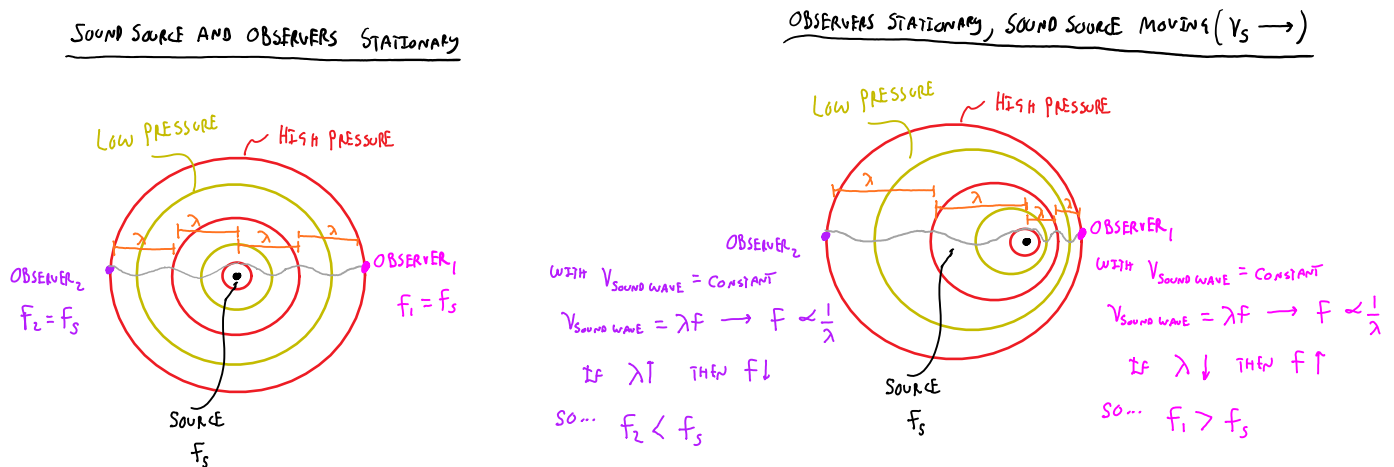 SOUND SOURCE AND OBSERVERS STATIONARY
LOW PRESSURE
HIGH PRESSURE
λ
λ
λ
λ
OBSERVER₂
f₂ = fₛ
OBSERVER₁
f₁ = fₛ
SOURCE
fₛ
OBSERVERS STATIONARY, SOUND SOURCE MOVING (Vₛ →)
LOW PRESSURE
HIGH PRESSURE
λ
λ
λ
λ
OBSERVER₂
WITH V_SOUND WAVE = CONSTANT
V_SOUND WAVE = λF → F ∝ 1/λ
IF λ↑ THEN f↓
SO... f₂ < fₛ
SOURCE
fₛ
OBSERVER₁
WITH V_SOUND WAVE = CONSTANT
V_SOUND WAVE = λF → F ∝ 1/λ
IF λ↓ THEN f↑
SO... f₁ > fₛ